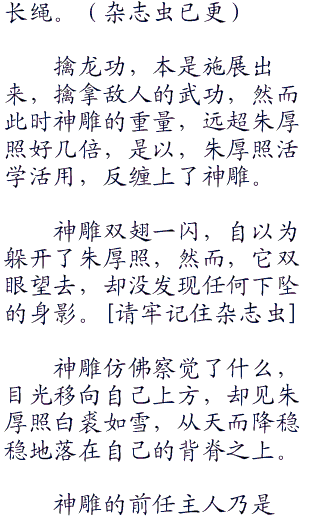 长绳。（杂志虫已更）
擒龙功，本是施展出
来，擒拿敌人的武功，然而
此时神雕的重量，远超朱厚
照好几倍，是以，朱厚照活
学活用，反缠上了神雕。
神雕双翅一闪，自以为
躲开了朱厚照，然而，它双
眼望去，却没发现任何下坠
的身影。[请牢记住杂志虫]
神雕仿佛察觉了什么，
目光移向自己上方，却见朱
厚照白裘如雪，从天而降稳
稳地落在自己的背脊之上。
神雕的前任主人乃是